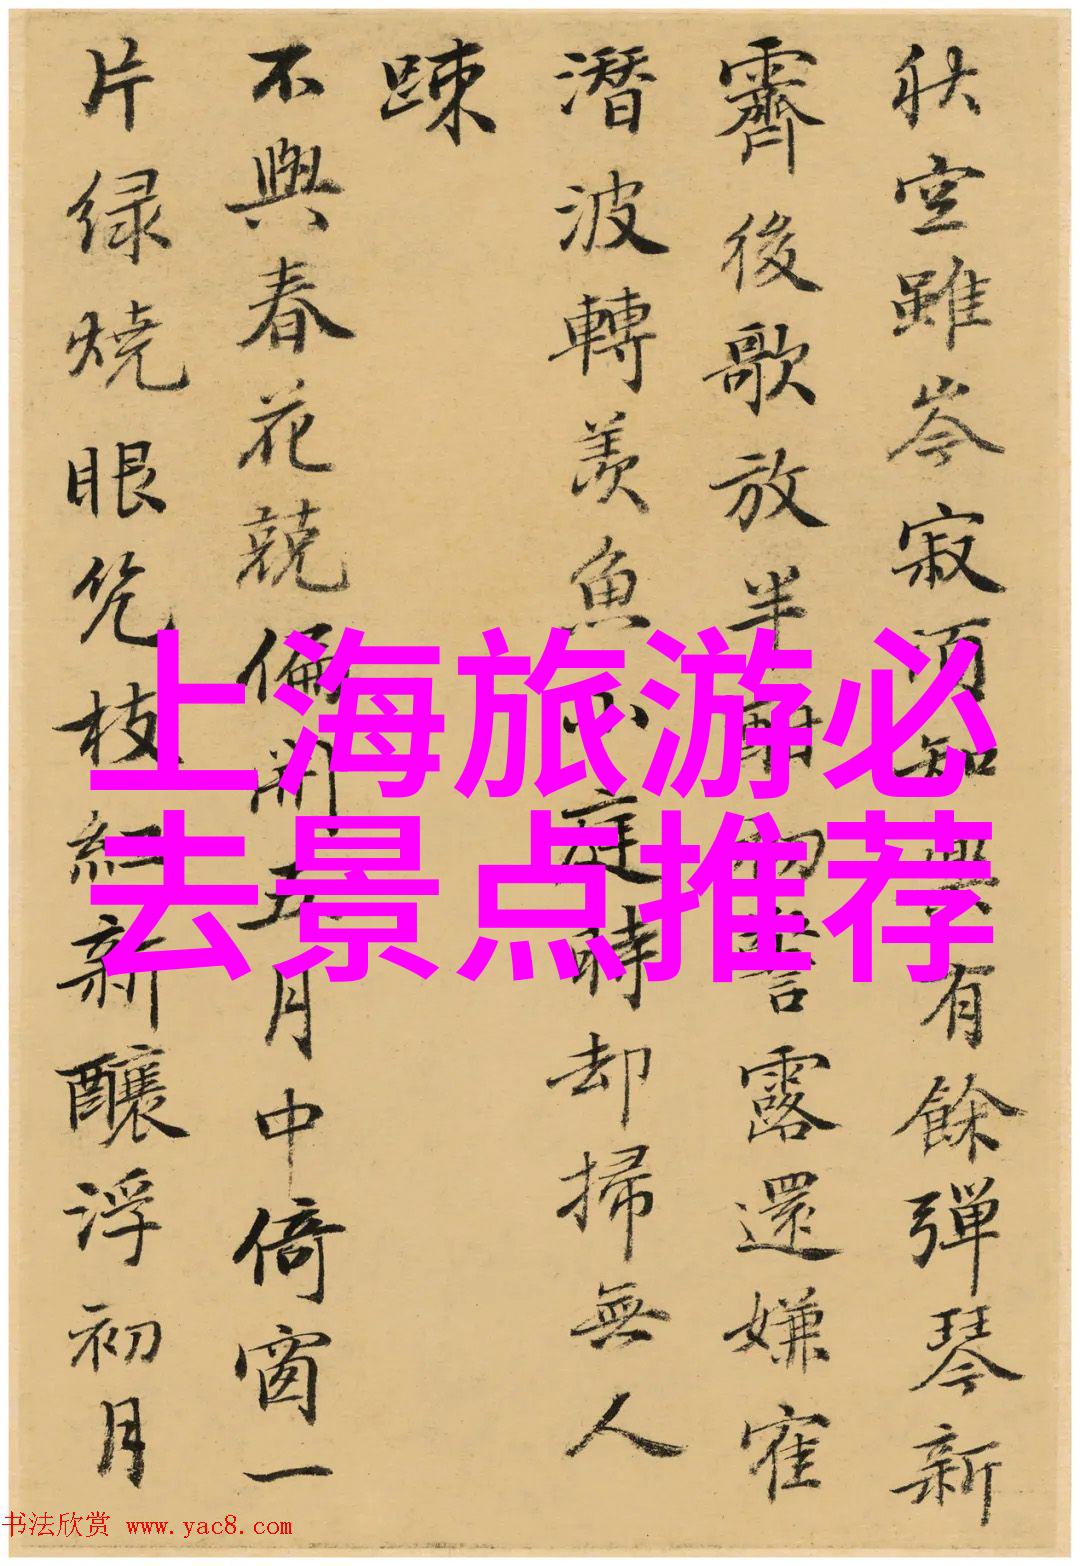 上海旅游必
去景点推荐
秋空雖岑寂而知興有餘彈琴新
霽後歌放半酣初書露還嫌寉
潛波轉羨魚小庭時却掃無人
踈
不與春花競偏開五月中倚窗一
片绿燒眼枝紅新釀浮初月
书法欣赏 www.yac8.com